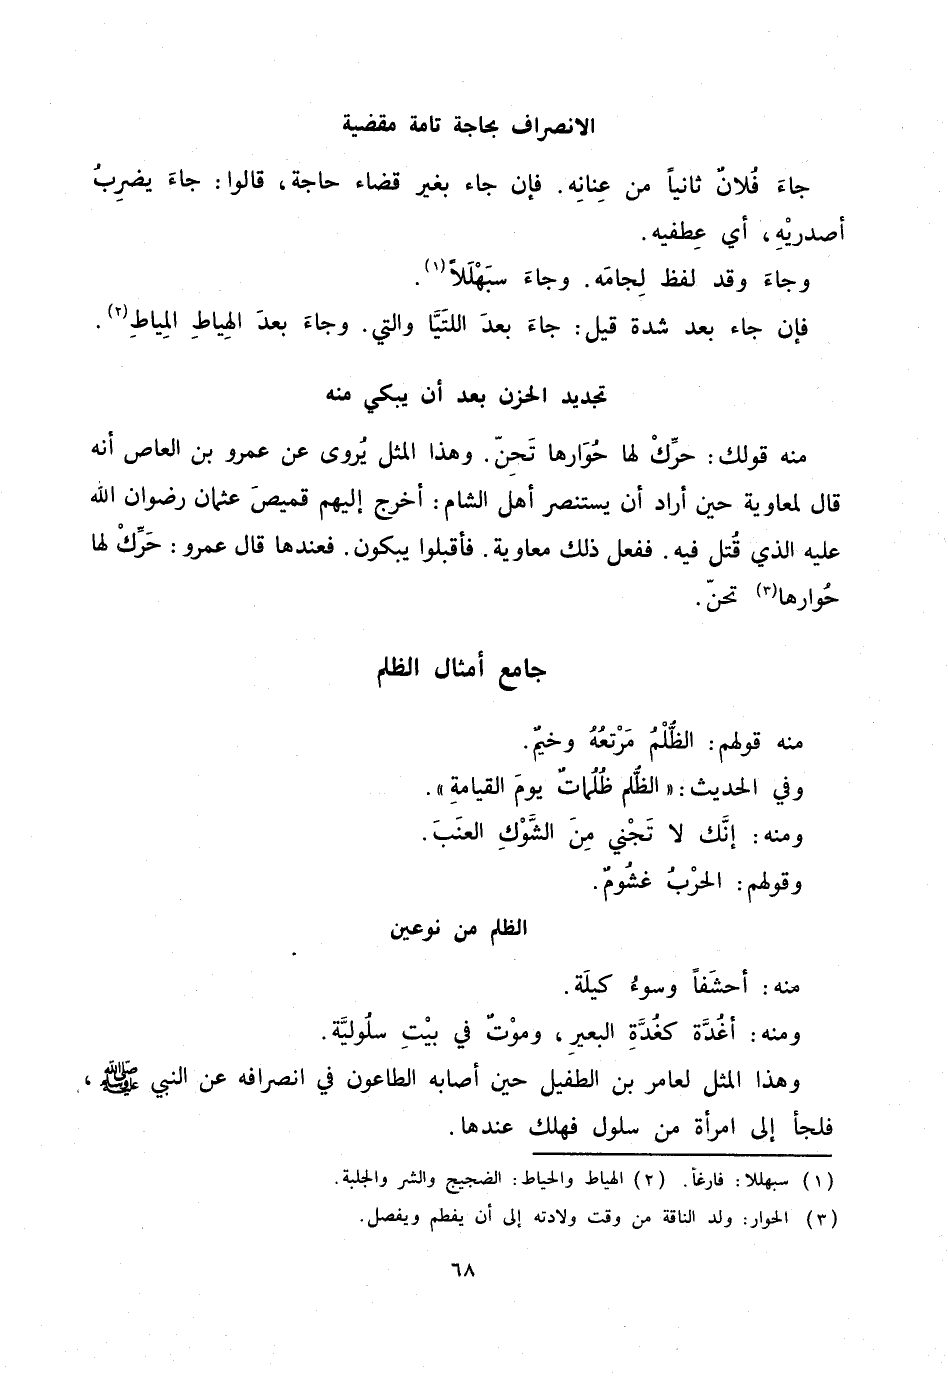 الانصراف بحاجة تامة مقضية
جاءَ فُلانٌ ثانياً من عِنانِه. فإن جاء بغير قضاء حاجة، قالوا: جاءَ يضرِبُ
أصدريْهِ، أي عِطفيه.
وجاءَ وقد لفظ لِجامَه. وجاءَ سبَهْلَلاً(١).
فإن جاء بعد شدة قيل: جاءَ بعدَ اللتَيَّا والتي. وجاءَ بعدَ الهِياطِ المِياطِ(٢).
تجديد الحزن بعد أن يبكي منه
منه قولك: حرِّكْ لها حُوَارها تَحِنّ. وهذا المثل يُروى عن عمرو بن العاص أنه
قال لمعاوية حين أراد أن يستنصر أهل الشام: أخرج إليهم قميصَ عثمان رضوان الله
عليه الذي قُتل فيه. ففعل ذلك معاوية. فأقبلوا يبكون. فعندها قال عمرو: حَرِّكْ لها
حُوارها(٣) تحنّ.
جامع أمثال الظلم
منه قولهم: الظُّلْمُ مَرْتعُهُ وخيمٌ.
وفي الحديث: «الظُّلم ظُلُماتٌ يومَ القيامةِ».
ومنه: إنَّك لا تَجْني مِنَ الشَّوْكِ العنَبَ.
وقولهم: الحرْبُ غشُومٌ.
الظلم من نوعين
منه: أحشَفاً وسوءُ كيلَة.
ومنه: أغُدَّة كغُدَّةِ البعيرِ، وموْتٌ في بيْتِ سلُوليَّة.
وهذا المثل لعامر بن الطفيل حين أصابه الطاعون في انصرافه عن النبي ﷺ،
فلجأ إلى امرأة من سلول فهلك عندها.
(١) سبهللا: فارغاً. (٢) الهياط والحياط: الضجيج والشر والجلبة.
(٣) الحوار: ولد الناقة من وقت ولادته إلى أن يفطم ويفصل.
٦٨